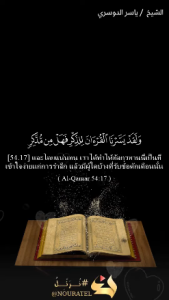 الشيخ / ياسر الدوسري
وَلَقَدْ يَسَّرْنَا الْقُرْءَانَ لِلذِّكْرِ فَهَلْ مِن مُّدَّكِرٍ
[54.17] และโดยแน่นอน เราได้ทำให้อัลกุรอานนี้เป็นที่
เข้าใจง่ายแก่การรำลึก แล้วมีผู้ใดบ้างที่รับข้อตักเตือนนั้น
( Al-Qamar 54:17 )
@NOURATEL